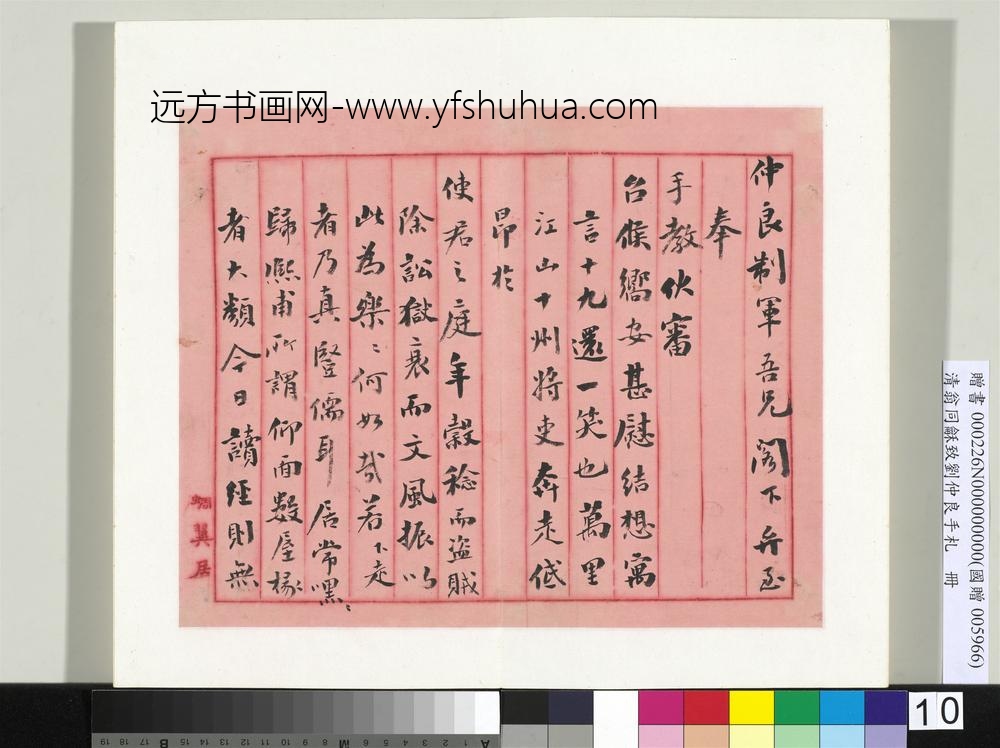 远方书画网-www.yfshuhua.com
仲良制軍吾兄閣下弁至
奉
手教伏審
台候嚮安甚慰結想寓
言十九還一笑也萬里
江山十州將吏奔走低
昂於
使君之庭年穀稔而盜賊
除訟獄衰而文風振以
此為樂〻何如哉若下走
者乃真豎儒耳居常嘿〻
歸熙甫所謂仰面數屋椽
者大類今日讀經則無
蜩翼居
贈書 000226N000000000(國贈 005966)
清翁同龢致劉仲良手札 冊
10
19 18 17 16 15 B 14 13 12 11 10 9 8 M 7 6 5 4 3 2 1 A